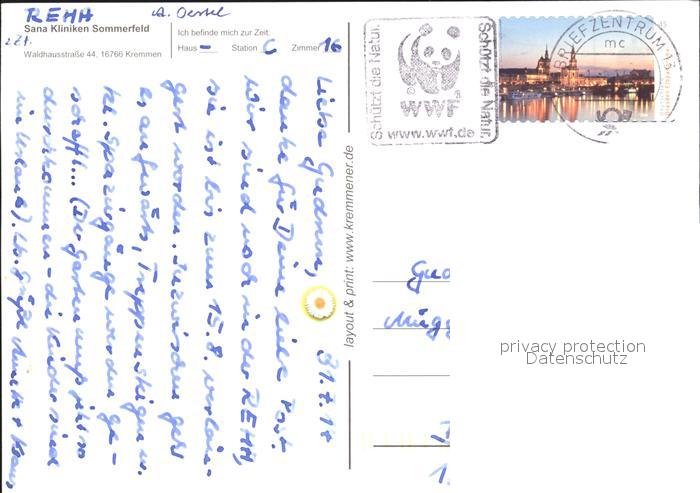 REHA
A. Oertel
Sana Kliniken Sommerfeld
z.Zt.
Waldhausstraße 44, 16766 Kremmen
Ich befinde mich zur Zeit:
Haus – Station C Zimmer 16
Liebe Gudrun, 31.7.17
danke für Deine liebe Post.
Wir sind noch in der REHA,
sie ist bis zum 15.8. verlän-
gert worden. Inzwischen geht
es aufwärts, Treppensteigen u.
kl. Spaziergänge werden ge-
schafft... (Der Garten muß jetzt so
durchkommen - die Kinder sind
im Urlaub). Lb. Grüße
layout & print: www.kremmener.de
Schützt die Natur.
WWF
www.wwf.de
Schützt die Natur.
BRIEFZENTRUM 13
mc
45
Gud
Mügg
1
privacy protection
Datenschutz